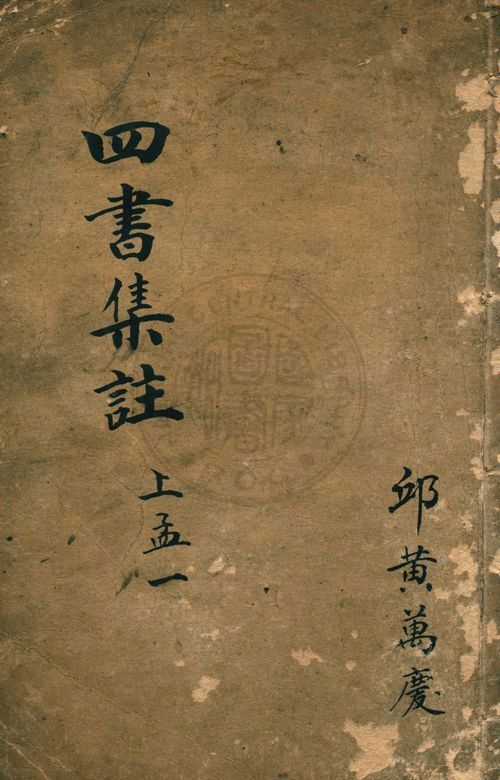 邱黃萬慶
四書集註
上孟一